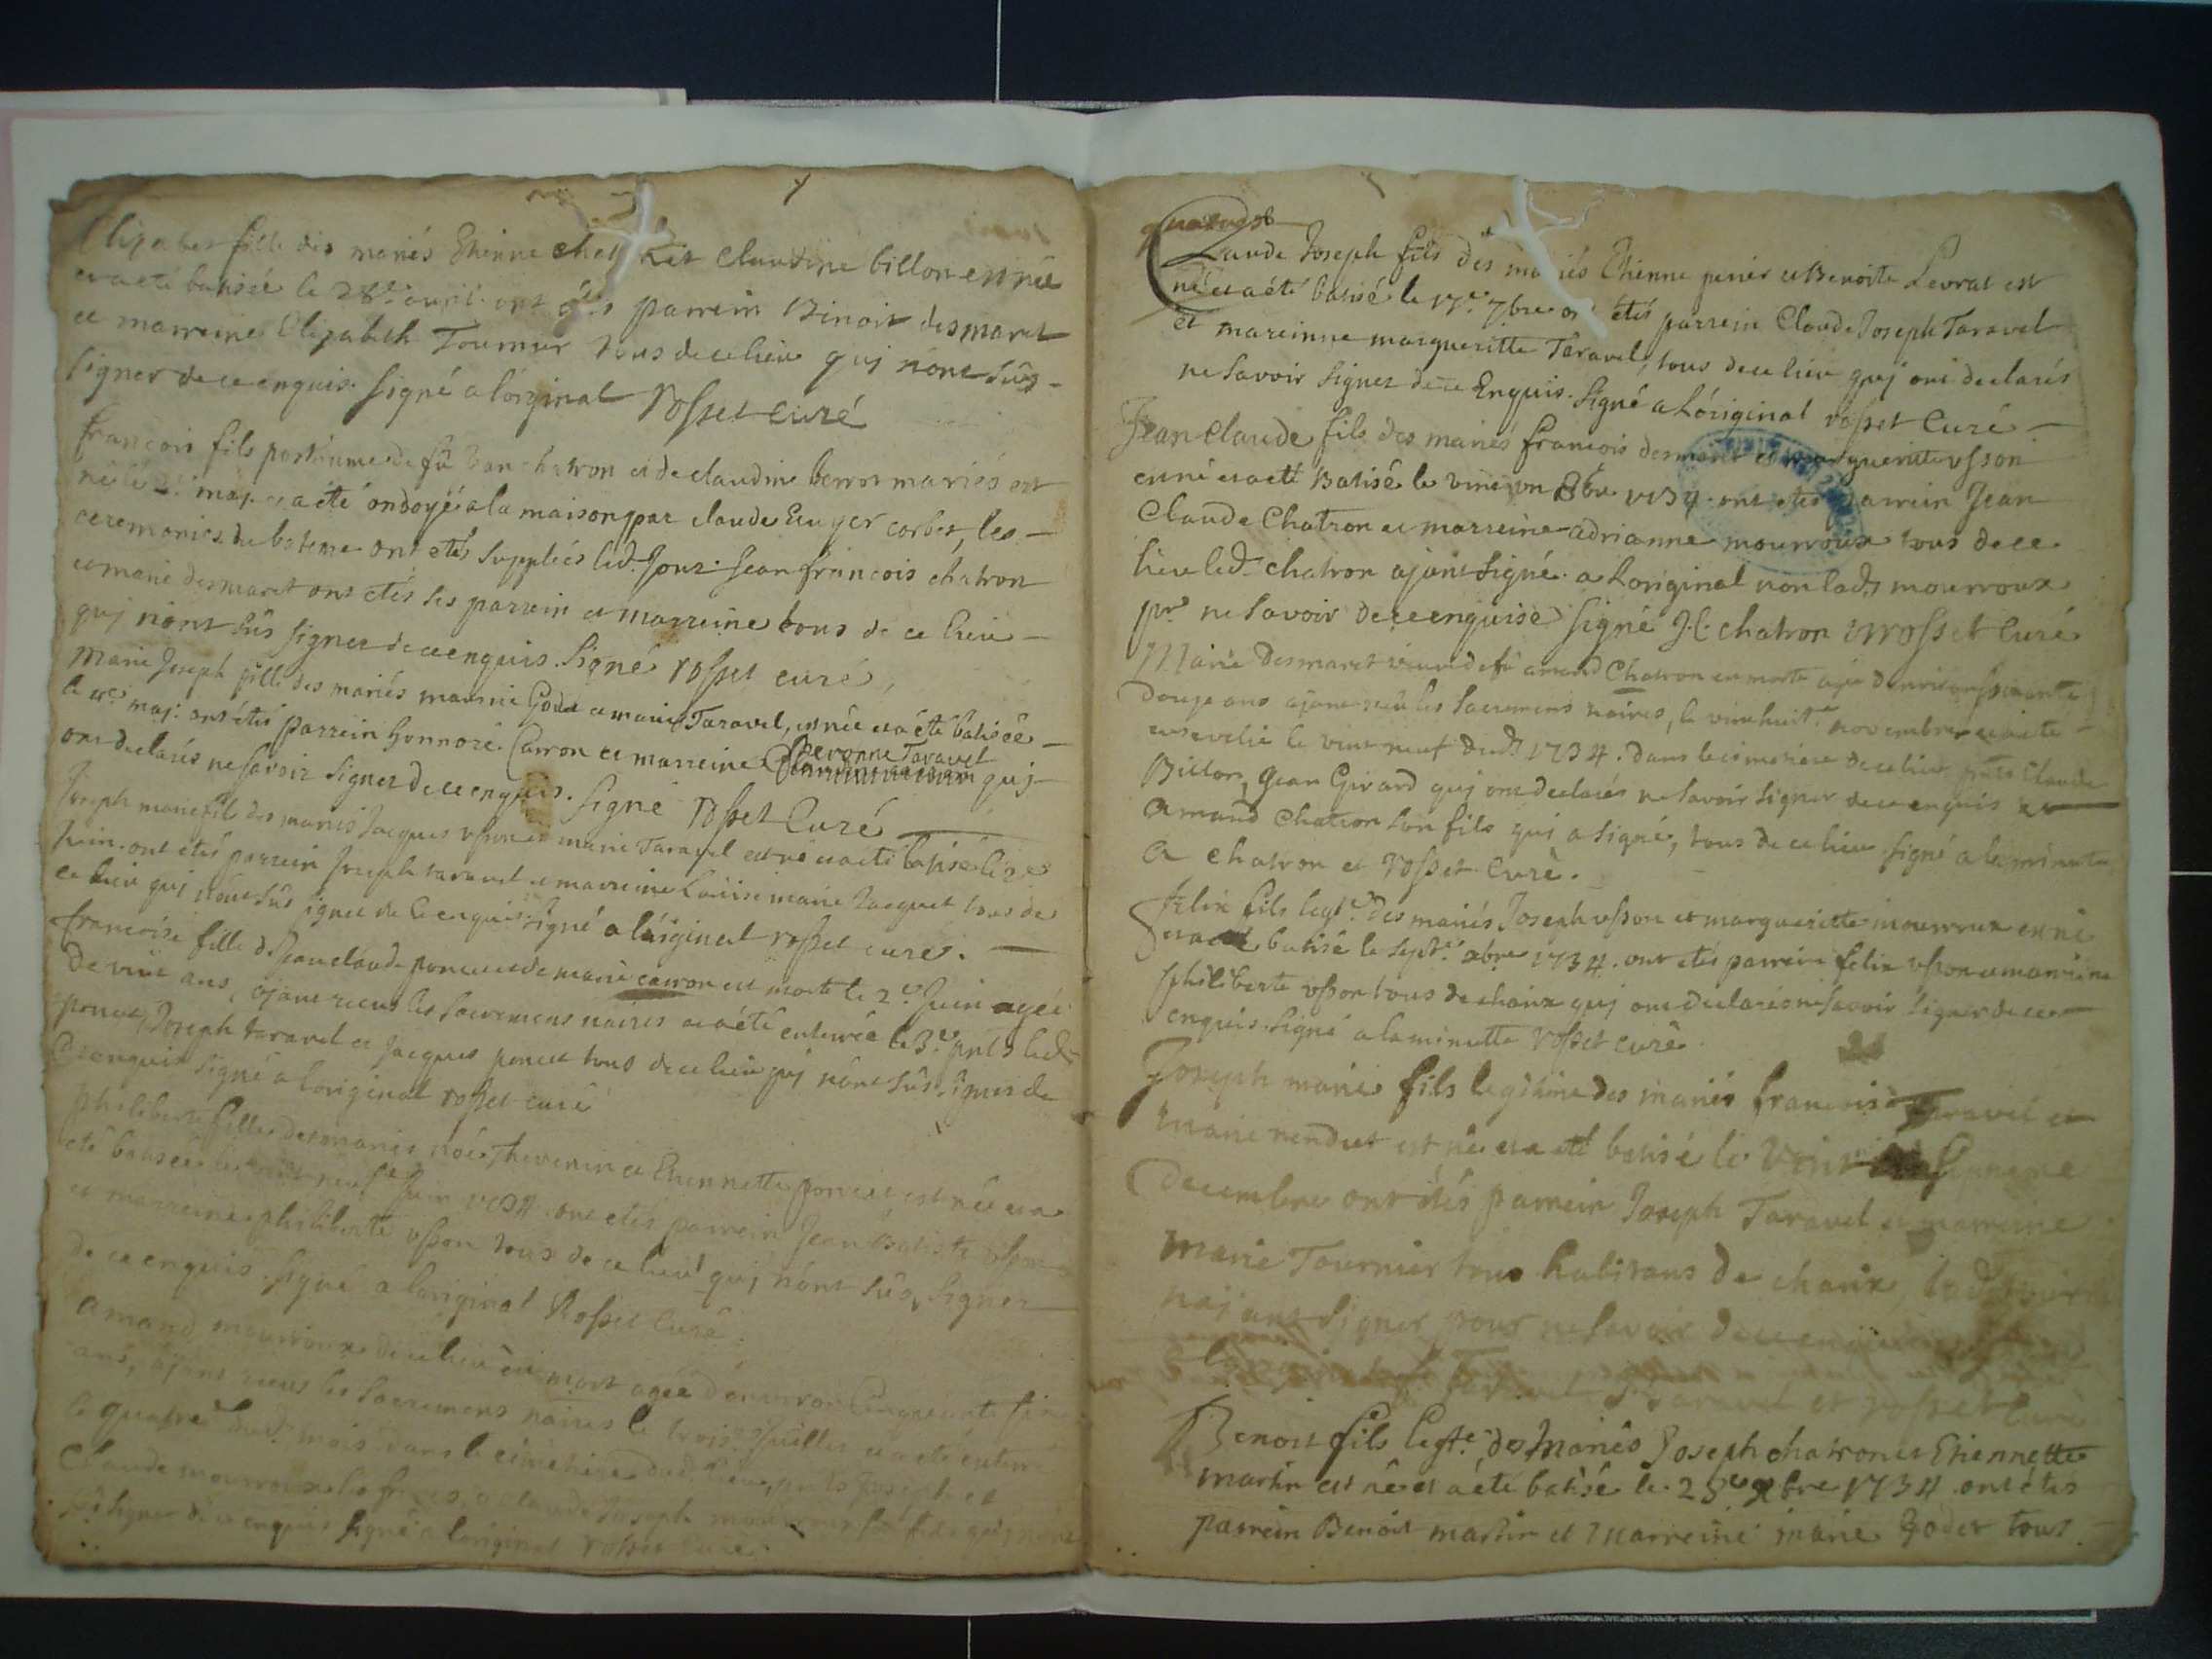 Elizabet fille des mariés Etienne chat et Claudine billon est née
et a eté batisée le 28e avril ont étés parrein Binoit desmaret
et marreine Elizabeth Tournier tous de ce lieu quj n'ont sûs
signer de ce enquis. signé a lóriginal Rosset curé
francois fils postume de fû chatron et de claudine berrot mariés est
né le maj. et a été ondoyé a la maison par claude corbet, les
ceremonies du bateme ont etés suppliées led. Jour. Jean francois chatron
et marie desmaret ont etés ses parrein et marreine tous de ce lieu
quj n'ont sûs signer de ce enquis. signé rosset curé,
marie Joseph fille des mariés Godet et marie Taravel, est née et a été batisée
le maj. ont étés parrein honnoré Carron et marreine pervonne Taravel quj
ont declarés ne savoir signer de ce enquis. signé rosset Curé
Joseph marie fils des mariés Jacques usson et marie Taravel est né et a eté batisé le
Juin. ont etés parrein Joseph taravel et marreine Loüise marie Jacquet tous de
ce lieu quj n'ont sûs signer de ce enquis signé a lóriginal rosset curé.
francoise fille de Jean claude poncet et de marie carron est morte le 2e Juin agée
de vint ans, ajant receus les sacremens naires et a été enterrée le 3e pnts led.
poncet, Joseph taravel et Jacques poncet tous de ce lieu quj n'ont sûs signer de
ce enquis signé a loriginal rosset curé
philiberte fille des mariés noé Thevenin et Etiennette poncet, est née et a
eté batisée le vint neufe Juin 1734. ont etés parrein Jean Batiste usson
et marreine philiberte usson tous de ce lieu quj n'ont sûs signer
de ce enquis. signé a loriginal Rosset Curé.
amand mourroux de ce lieu est mort agée d'environ Cinquante
ans, ajant receus les sacremens naires le trois Juillet et a eté enterré
le quatre dud. mois dans le cimetiere dud. lieu, pnts Joseph et
Claude mourroux ses freres, et claude Joseph mourroux son fils quj n'ont
sûs signer de ce enquis signé a loriginal rosset curé
Claude Joseph fils des mariés Etienne perier et Benoite Levrat est
né et a été batisé le 17e 7bre ont étés parrein Claude Joseph Taravel
et mareinne margueritte Taravel, tous de ce lieu quj ont declarés
ne savoir signer de ce Enquis. signé a Lóriginal rosset Curé
Jean claude fils des mariés francois desmaret et margueritte usson
est né et a eté Batisé le vint un 8bre 1734. ont etés parrein Jean
Claude Chatron et marreine adrianne mourroux tous de ce
lieu led. chatron ajant signé a Loriginal non lad. mourroux
pr. ne savoir de ce enquise signé J. C. chatron rosset Curé
Marie Desmaret veuve de fû amand Chatron est morte agée d'environ soixante
douze ans ajant receu les sacremens naires, le vint huite novembre et a eté
ensevelie le vint neuf dud. 1734. dans le cimetiere de ce lieu pnts Claude
Billon, Jean Girard quj ont declarés ne savoir signer de ce enquis et
amand Chatron son fils quj a signé, tous de ce lieu signé a la minute
a chatron et rosset curé.
felix fils legte. des mariés Joseph usson et margueritte mourroux est né
et a eté batisé le septe. xbre 1734. ont etés parrein felix usson et marreine
philiberte usson tous de chaix quj ont declarés ne savoir signer de ce
enquis. signé a la minutte rosset curé
Joseph marie fils legitime des mariés francois Taravel et
marie rendut est né et a eté batisé le vint
Decembre ont étés parrein Joseph Taravel et marreine
marie Tournier tous habitans de chaix
n'ajant signer pour ne savoir de ce enquis
Taravel et rosset Curé
Benoit fils legte. des Mariés Joseph chatron et Etiennette
martin est né et a été batisé le 25e xbre 1734 ont étés
parrein Benoit martin et Marreine marie Godet tous